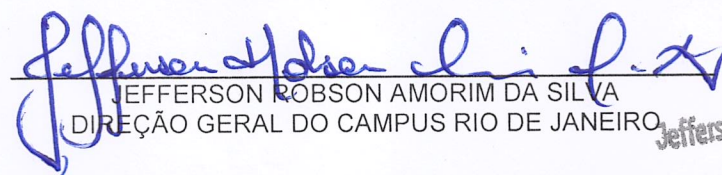 Jefferson Robson
JEFFERSON ROBSON AMORIM DA SILVA
DIREÇÃO GERAL DO CAMPUS RIO DE JANEIRO
Jeffers